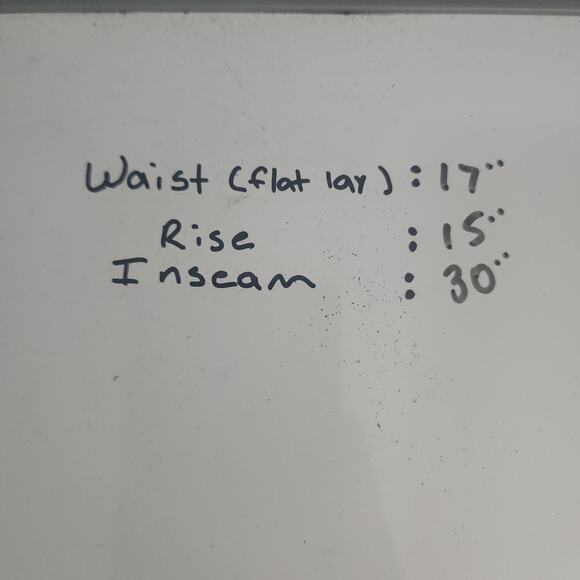 Waist (flat lay) : 17"
Rise : 15"
Inseam : 30"